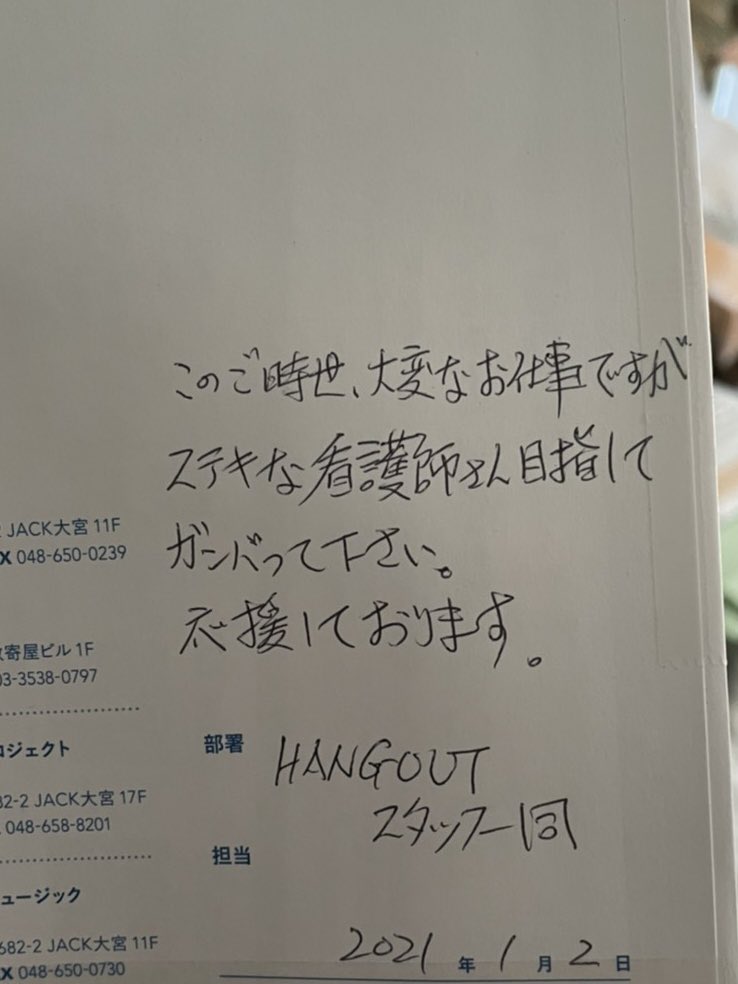 このご時世、大変なお仕事ですが
ステキな看護師さん目指して
ガンバって下さい。
応援しております。
JACK大宮 11F
X 048-650-0239
寄屋ビル 1F
03-3538-0797
ロジェクト
82-2 JACK大宮 17F
048-658-8201
ュージック
682-2 JACK大宮 11F
X 048-650-0730
部署 HANGOUT
スタッフ一同
担当
2021年1月2日